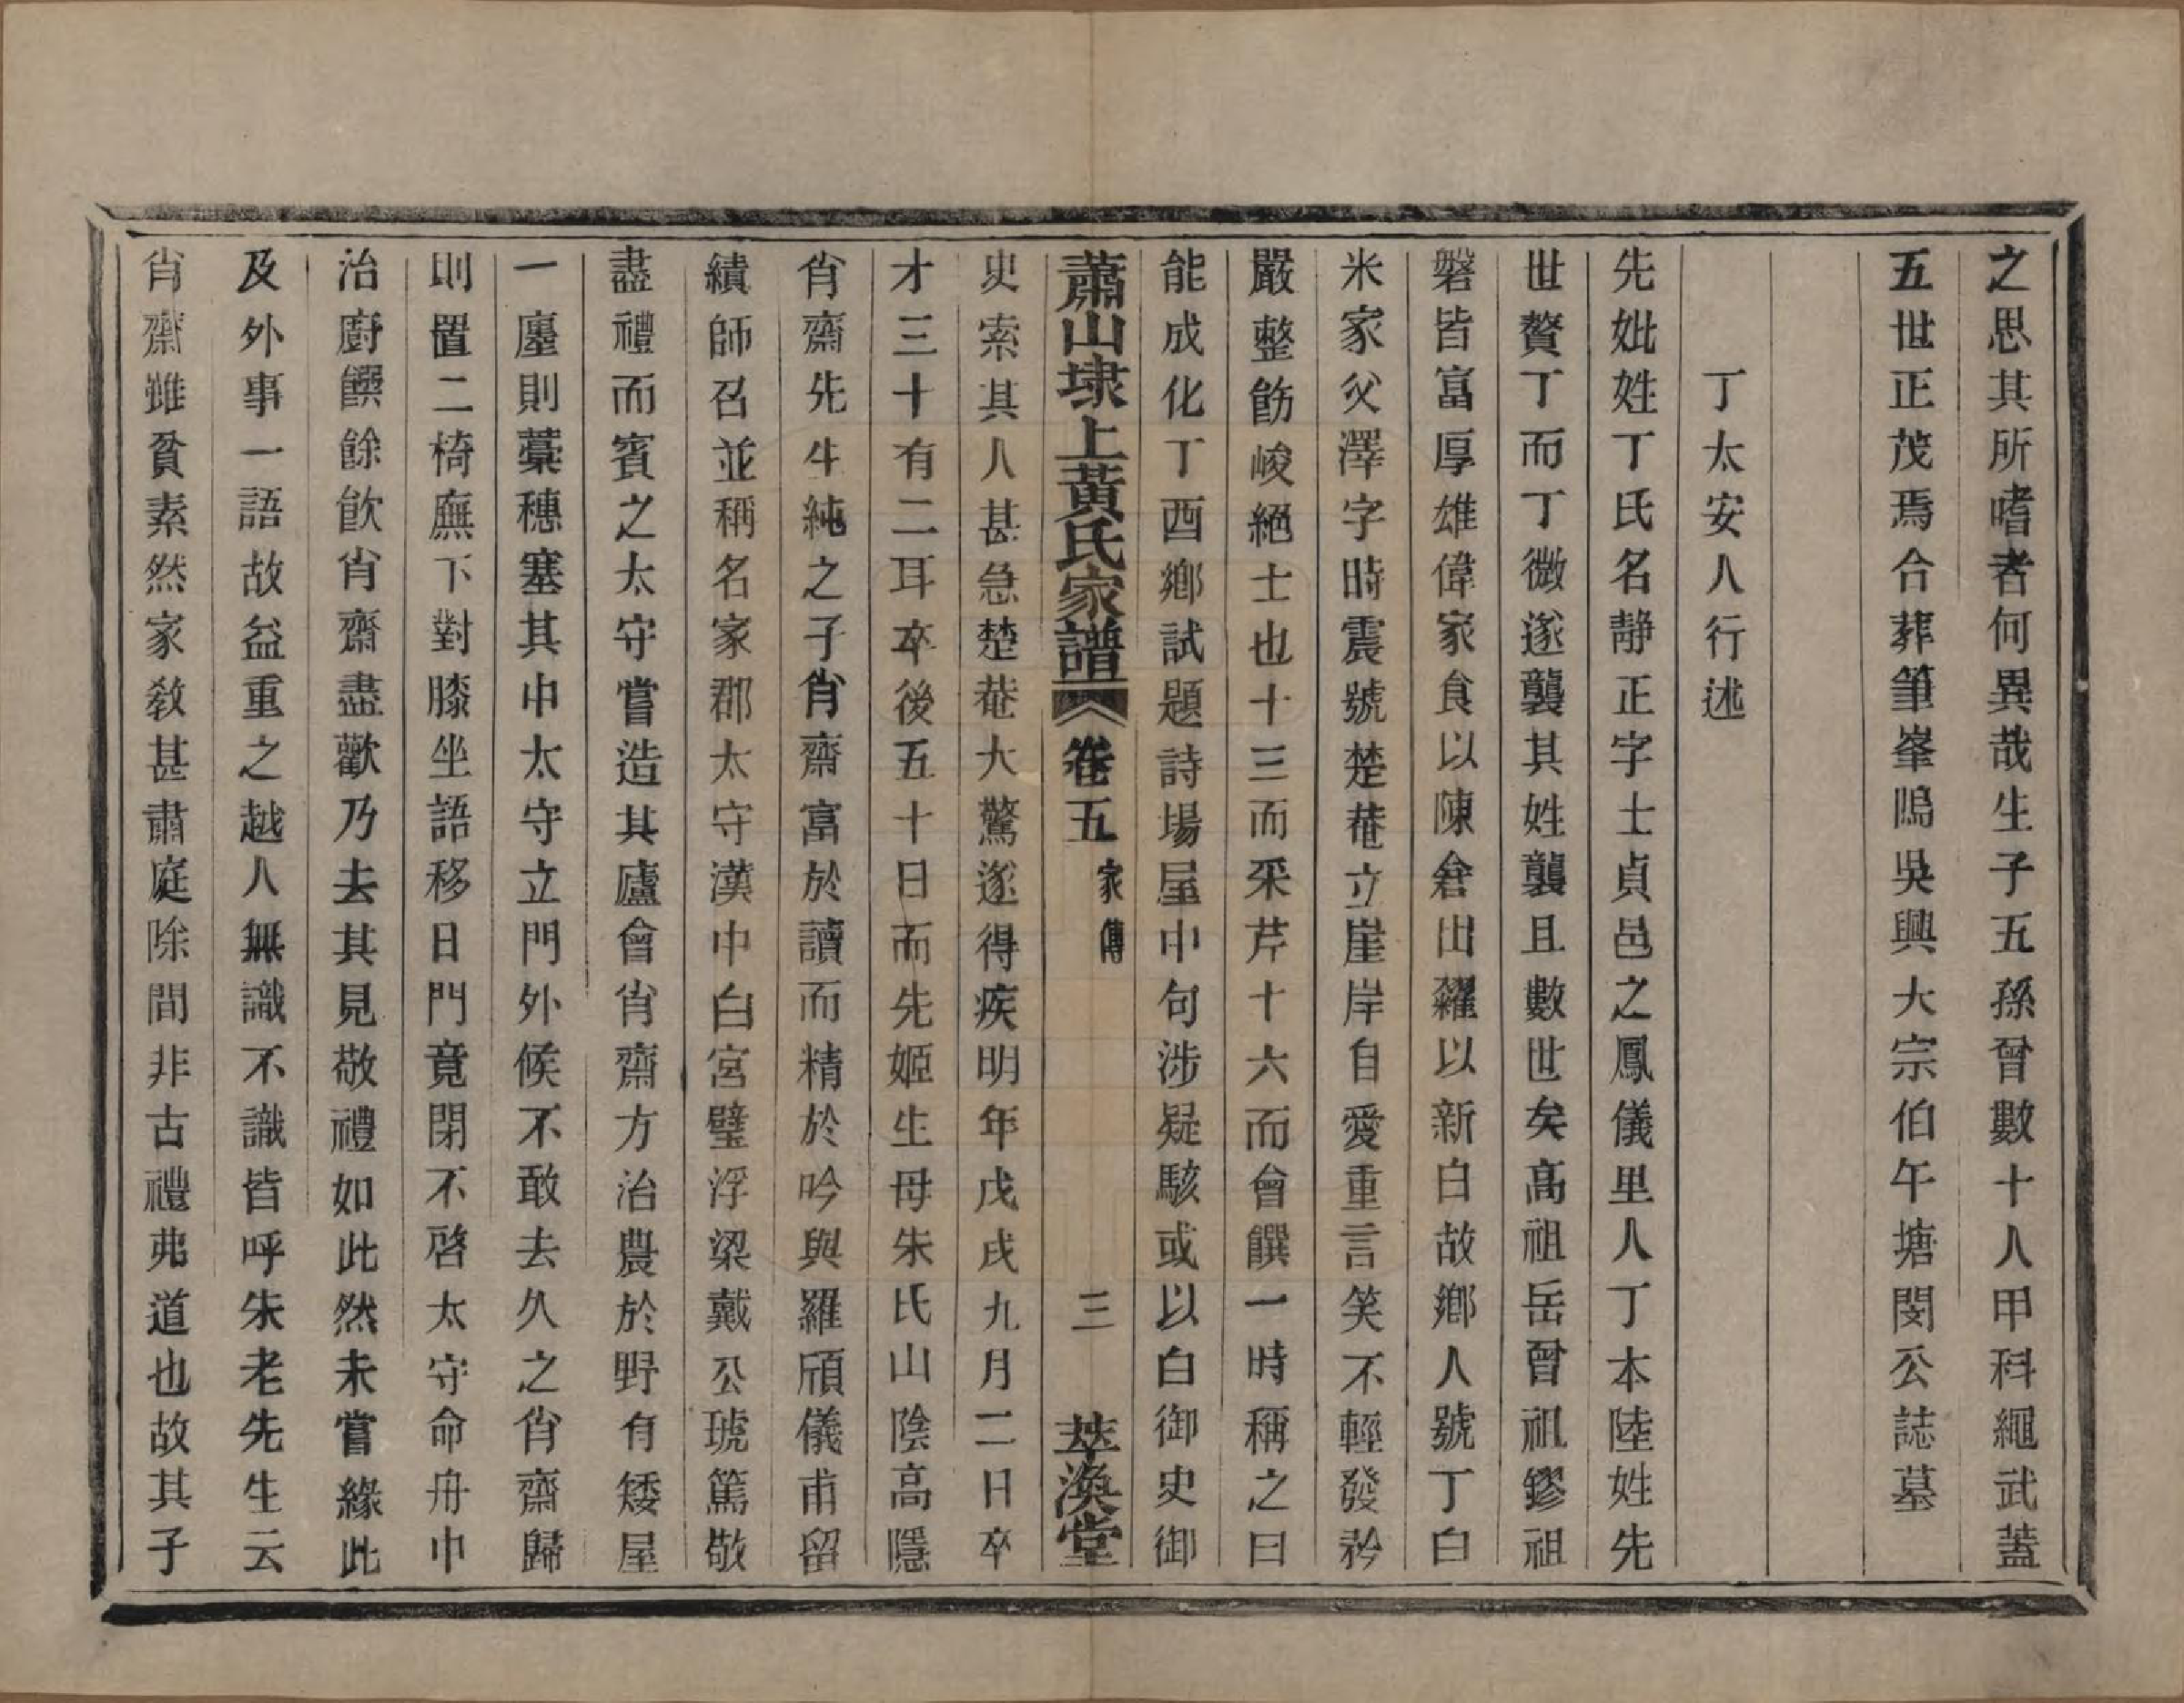 之思其所嗜者何異哉生子五孫曾數十人甲科繩武蓋
五世正茂焉合葬筆峯隝吳興大宗伯午塘閔公誌墓
丁太安人行述
先妣姓丁氏名靜正字士貞邑之鳳儀里人丁本陸姓先
世贅丁而丁微遂襲其姓襲且數世矣高祖岳曾祖鏐祖
磐皆富厚雄偉家食以陳倉出糶以新白故鄉人號丁白
米家父澤字時震號楚菴立崖岸自愛重言笑不輕發矜
嚴整飭峻絕士也十三而采芹十六而會饌一時稱之曰
能成化丁酉鄉試題詩場屋中句涉疑駭或以白御史御
蕭山埭上黃氏家譜 卷五 家傳 三 萃渙堂
史索其人甚急楚菴大驚遂得疾明年戊戌九月二日卒
才三十有二耳卒後五十日而先姬生母朱氏山陰高隱
肖齋先生純之子肖齋富於讀而精於吟與羅頎儀甫留
績師召並稱名家郡太守漢中白宮璧浮梁戴公琥篤敬
盡禮而賓之太守嘗造其廬會肖齋方治農於野有矮屋
一廛則藁穗塞其中太守立門外候不敢去久之肖齋歸
則置二椅廡下對膝坐語移日門竟閉不啓太守命舟中
治廚饌餘飲肖齋盡歡乃去其見敬禮如此然未嘗緣此
及外事一語故益重之越人無識不識皆呼朱老先生云
肖齋雖貧素然家敎甚肅庭除間非古禮弗道也故其子